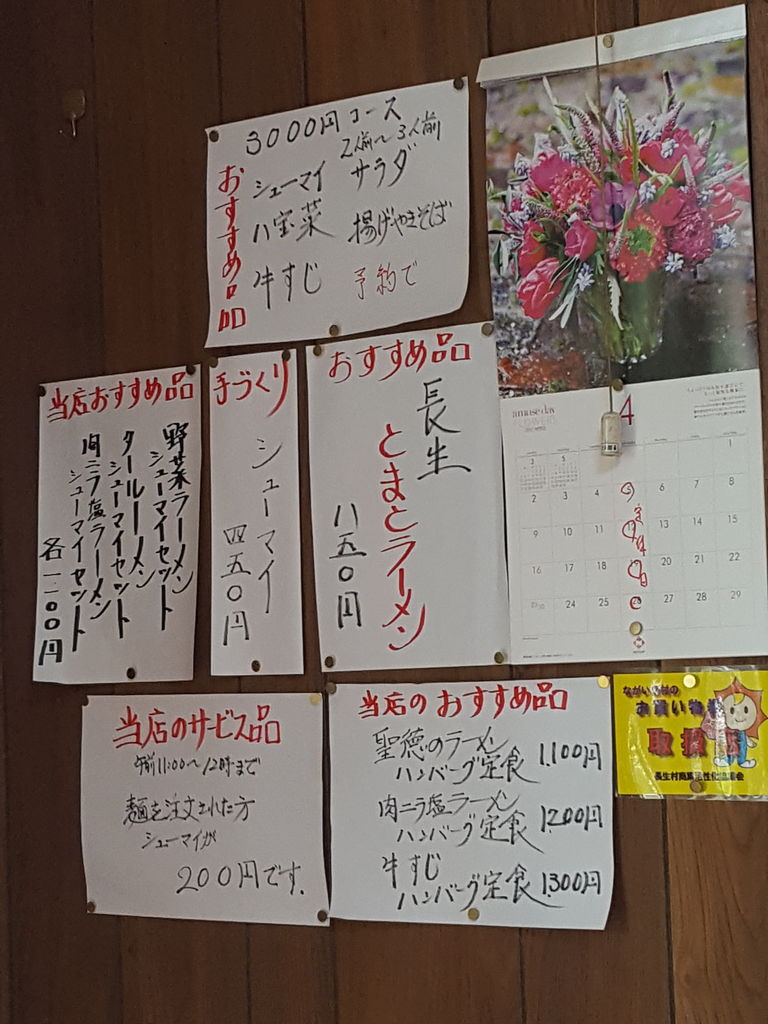 3000円コース
2人前〜3人前
おすすめ品
シューマイ サラダ
八宝菜 揚げやきそば
牛すじ 予約で
当店おすすめ品
野菜ラーメン
シューマイセット
タールーメン
シューマイセット
肉ニラ塩ラーメン
シューマイセット
各一一00円
手づくり
シューマイ
四五0円
おすすめ品
長生
とまとラーメン
八五0円
amuse day
4
1
2 3 4 5 6 7 8
9 10 11 12 13 14 15
16 17 18 19 20 21 22
24 25 26 27 28 29
当店のサービス品
午前11:00〜12時まで
麺を注文された方
シューマイが
200円です.
当店のおすすめ品
聖徳のラーメン
ハンバーグ定食 1.100円
肉ニラ塩ラーメン
ハンバーグ定食 1200円
牛すじ
ハンバーグ定食 1300円
お買い物券
取扱店